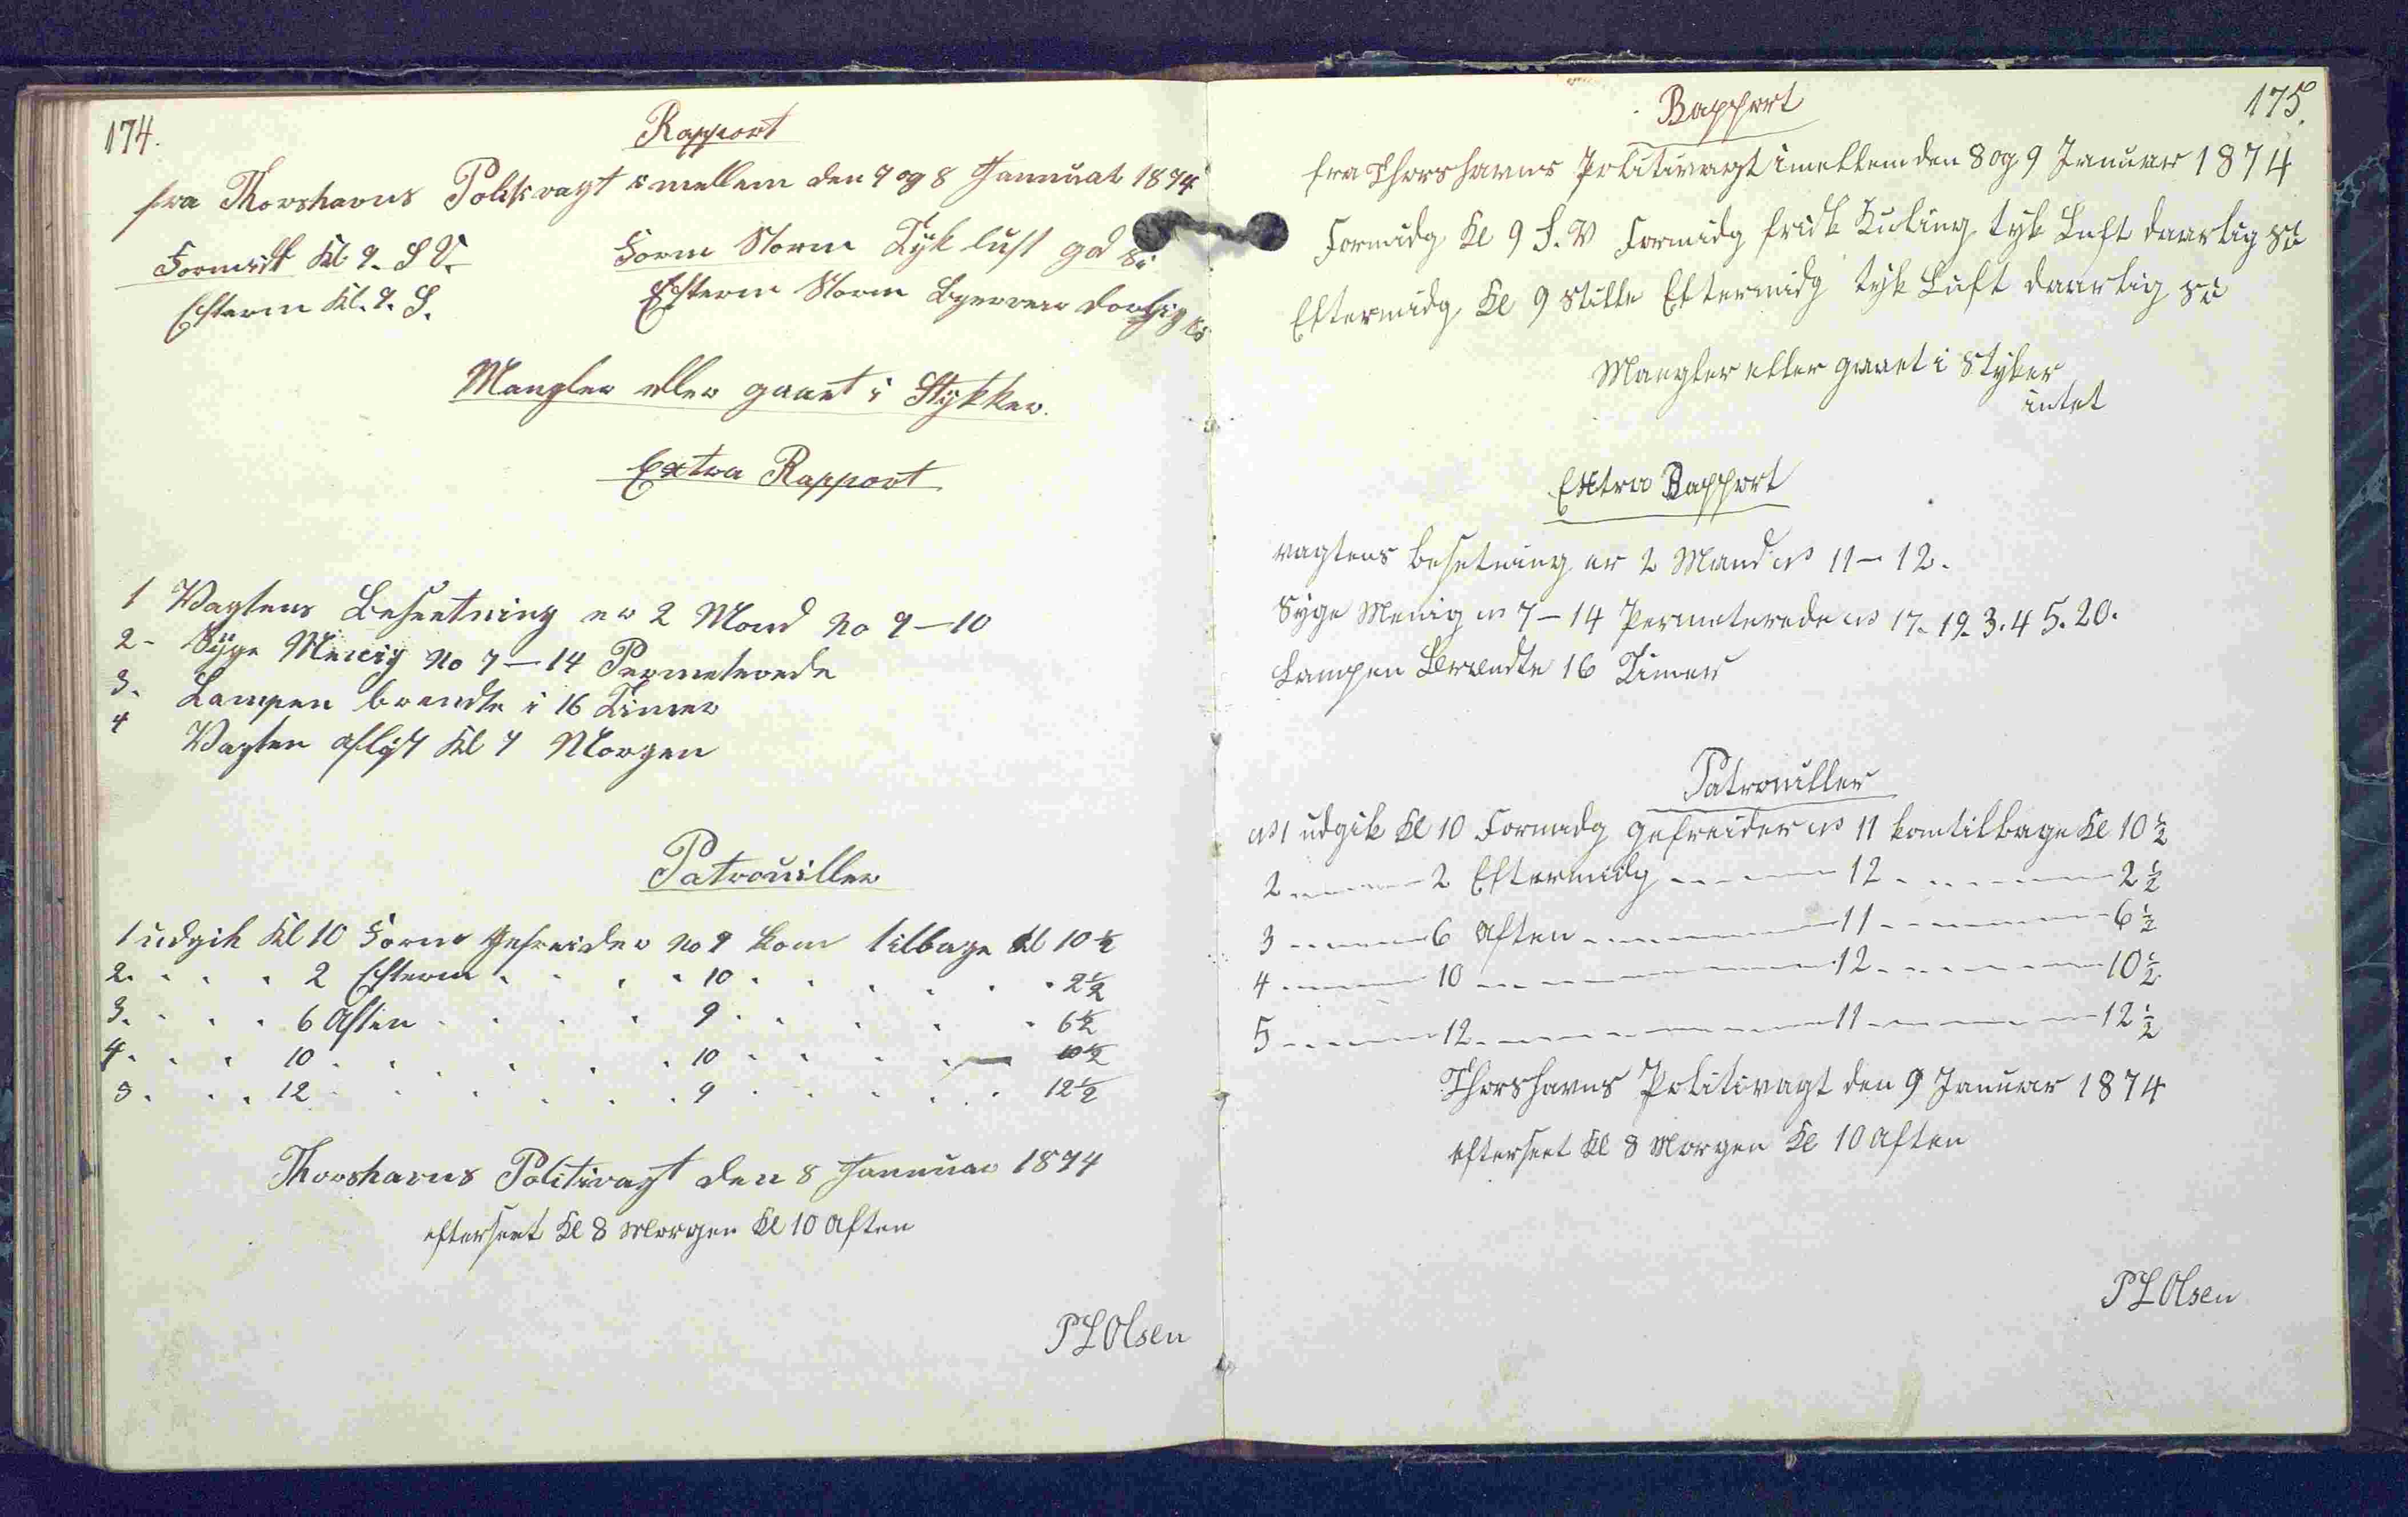 174.
Rapport
fra Thorshavns Politivagt imellem den 7 og 8 Januar 1874
Formidt Kl. 9. S V. Form Storm Tyk luft god Si
Efterm Kl. 9. S. Efterm Storm Si
Mangler eller gaaet i Stykker.
Extra Rapport
1 Vagtens Besætning er 2 Mand No 9-10
2- Syge Menig No 7-14 Permeterede
3. Lampen brendte i 16 Timer
4 Vagten aflöst Kl 7 Morgen
Patrouiller
1 udgik Kl 10 Form Gefreider No 9 kom tilbage Kl 10 1/2
2. . . . 2 Efterm . . . . 10 . . . . . . 2 1/2
3. . . . 6 Aften . . . . 9 . . . . . 6 1/2
4. . . 10 . . . . . . 10 . . . . . 10 1/2
5. . . 12 . . . . . . 9 . . . . . . 12 1/2
Thorshavns Politivagt den 8 Januar 1874
efterseet Kl 8 Morgen Kl 10 Aften
P L Olsen
175.
Rapport
fra Thorshavns Politivagt imellem den 8 og 9 Januar 1874
Formidg Kl 9 S. V Formidg frisk Kuling tyk Luft daarlig Si
Eftermidg Kl 9 Stille Eftermidg tyk Luft daarlig Si
Mangler eller gaaet i Styker
intet
Extra Rapport
vagtens besetning er 2 Mand No 11-12.
Syge Menig No 7-14 Permeterede No 17. 19. 3. 4 5. 20.
Lampen Brændte 16 Timer
Patrouiller
No 1 udgik Kl 10 Formidg gefreider No 11 kom tilbage Kl 10 1/2
2 ------ 2 Eftermidg ------ 12 ------ 2 1/2
3 ------ 6 Aften ------ 11 ------ 6 1/2
4 ------ 10 ------ 12 ------ 10 1/2
5 ------ 12 ------ 11 ------ 12 1/2
Thorshavns Politivagt den 9 Januar 1874
efterseet Kl 8 Morgen Kl 10 Aften
P L Olsen